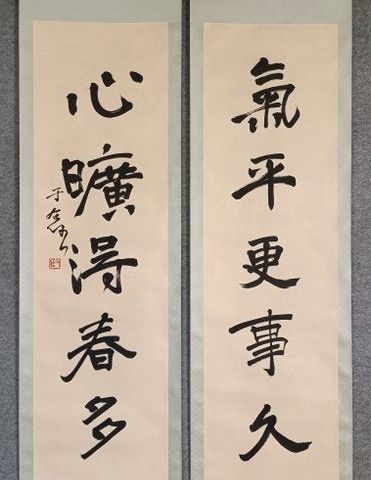 氣平更事久
心曠淂春多
于右任